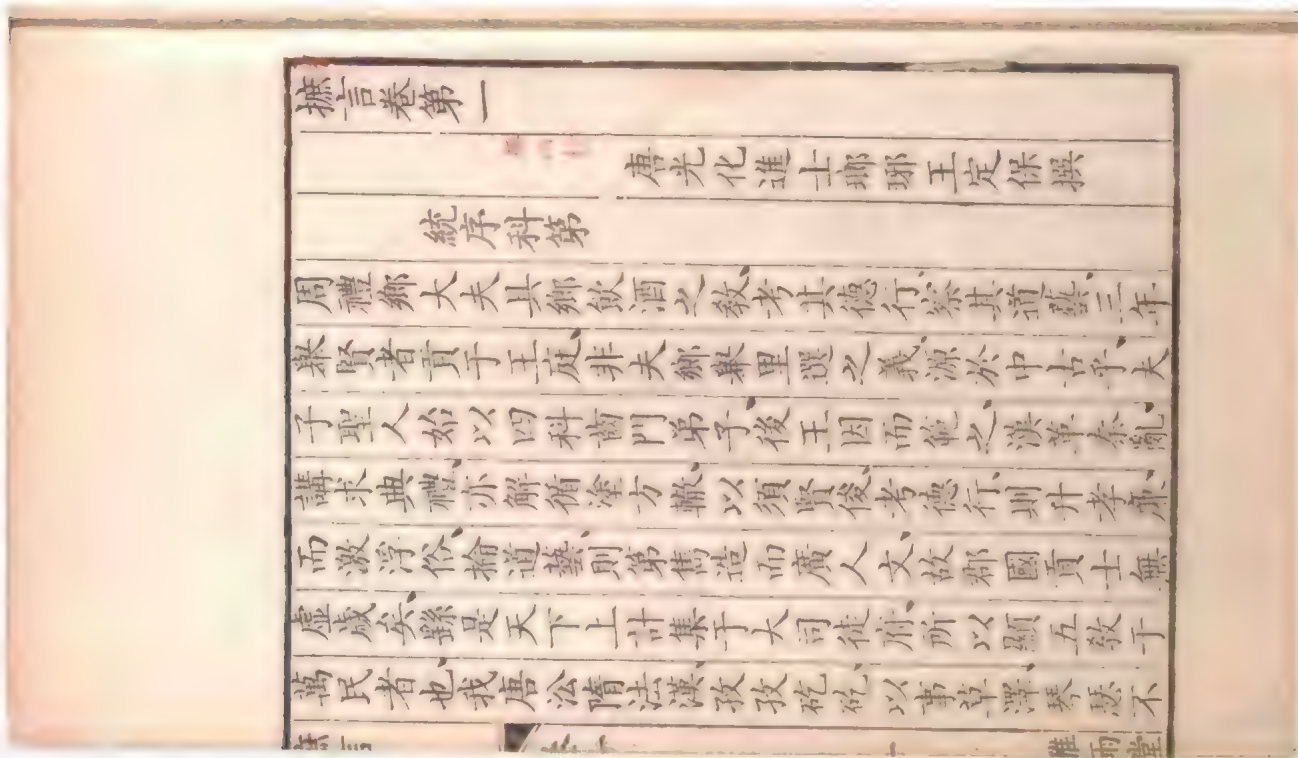 摭言卷第一
唐光化進士瑯琊王定保撰
統序科第
周禮鄉大夫具鄉飲酒之敎考其德行察其道藝三年
舉賢者貢于王庭非夫鄉舉里選之義源於中古乎夫
子聖人始以四科齒門弟子後王因而範之漢革秦亂
講求典禮亦解循塗方轍以須賢俊考德行則升孝廉
而激浮俗掄道藝則第雋造而廣人文故郡國貢士無
虛歲矣繇是天下上計集于大司徒府所以顯五敎于
萬民者也我唐㳂隋法漢孜孜矻矻以事草澤琴瑟不
摭言
雅雨堂